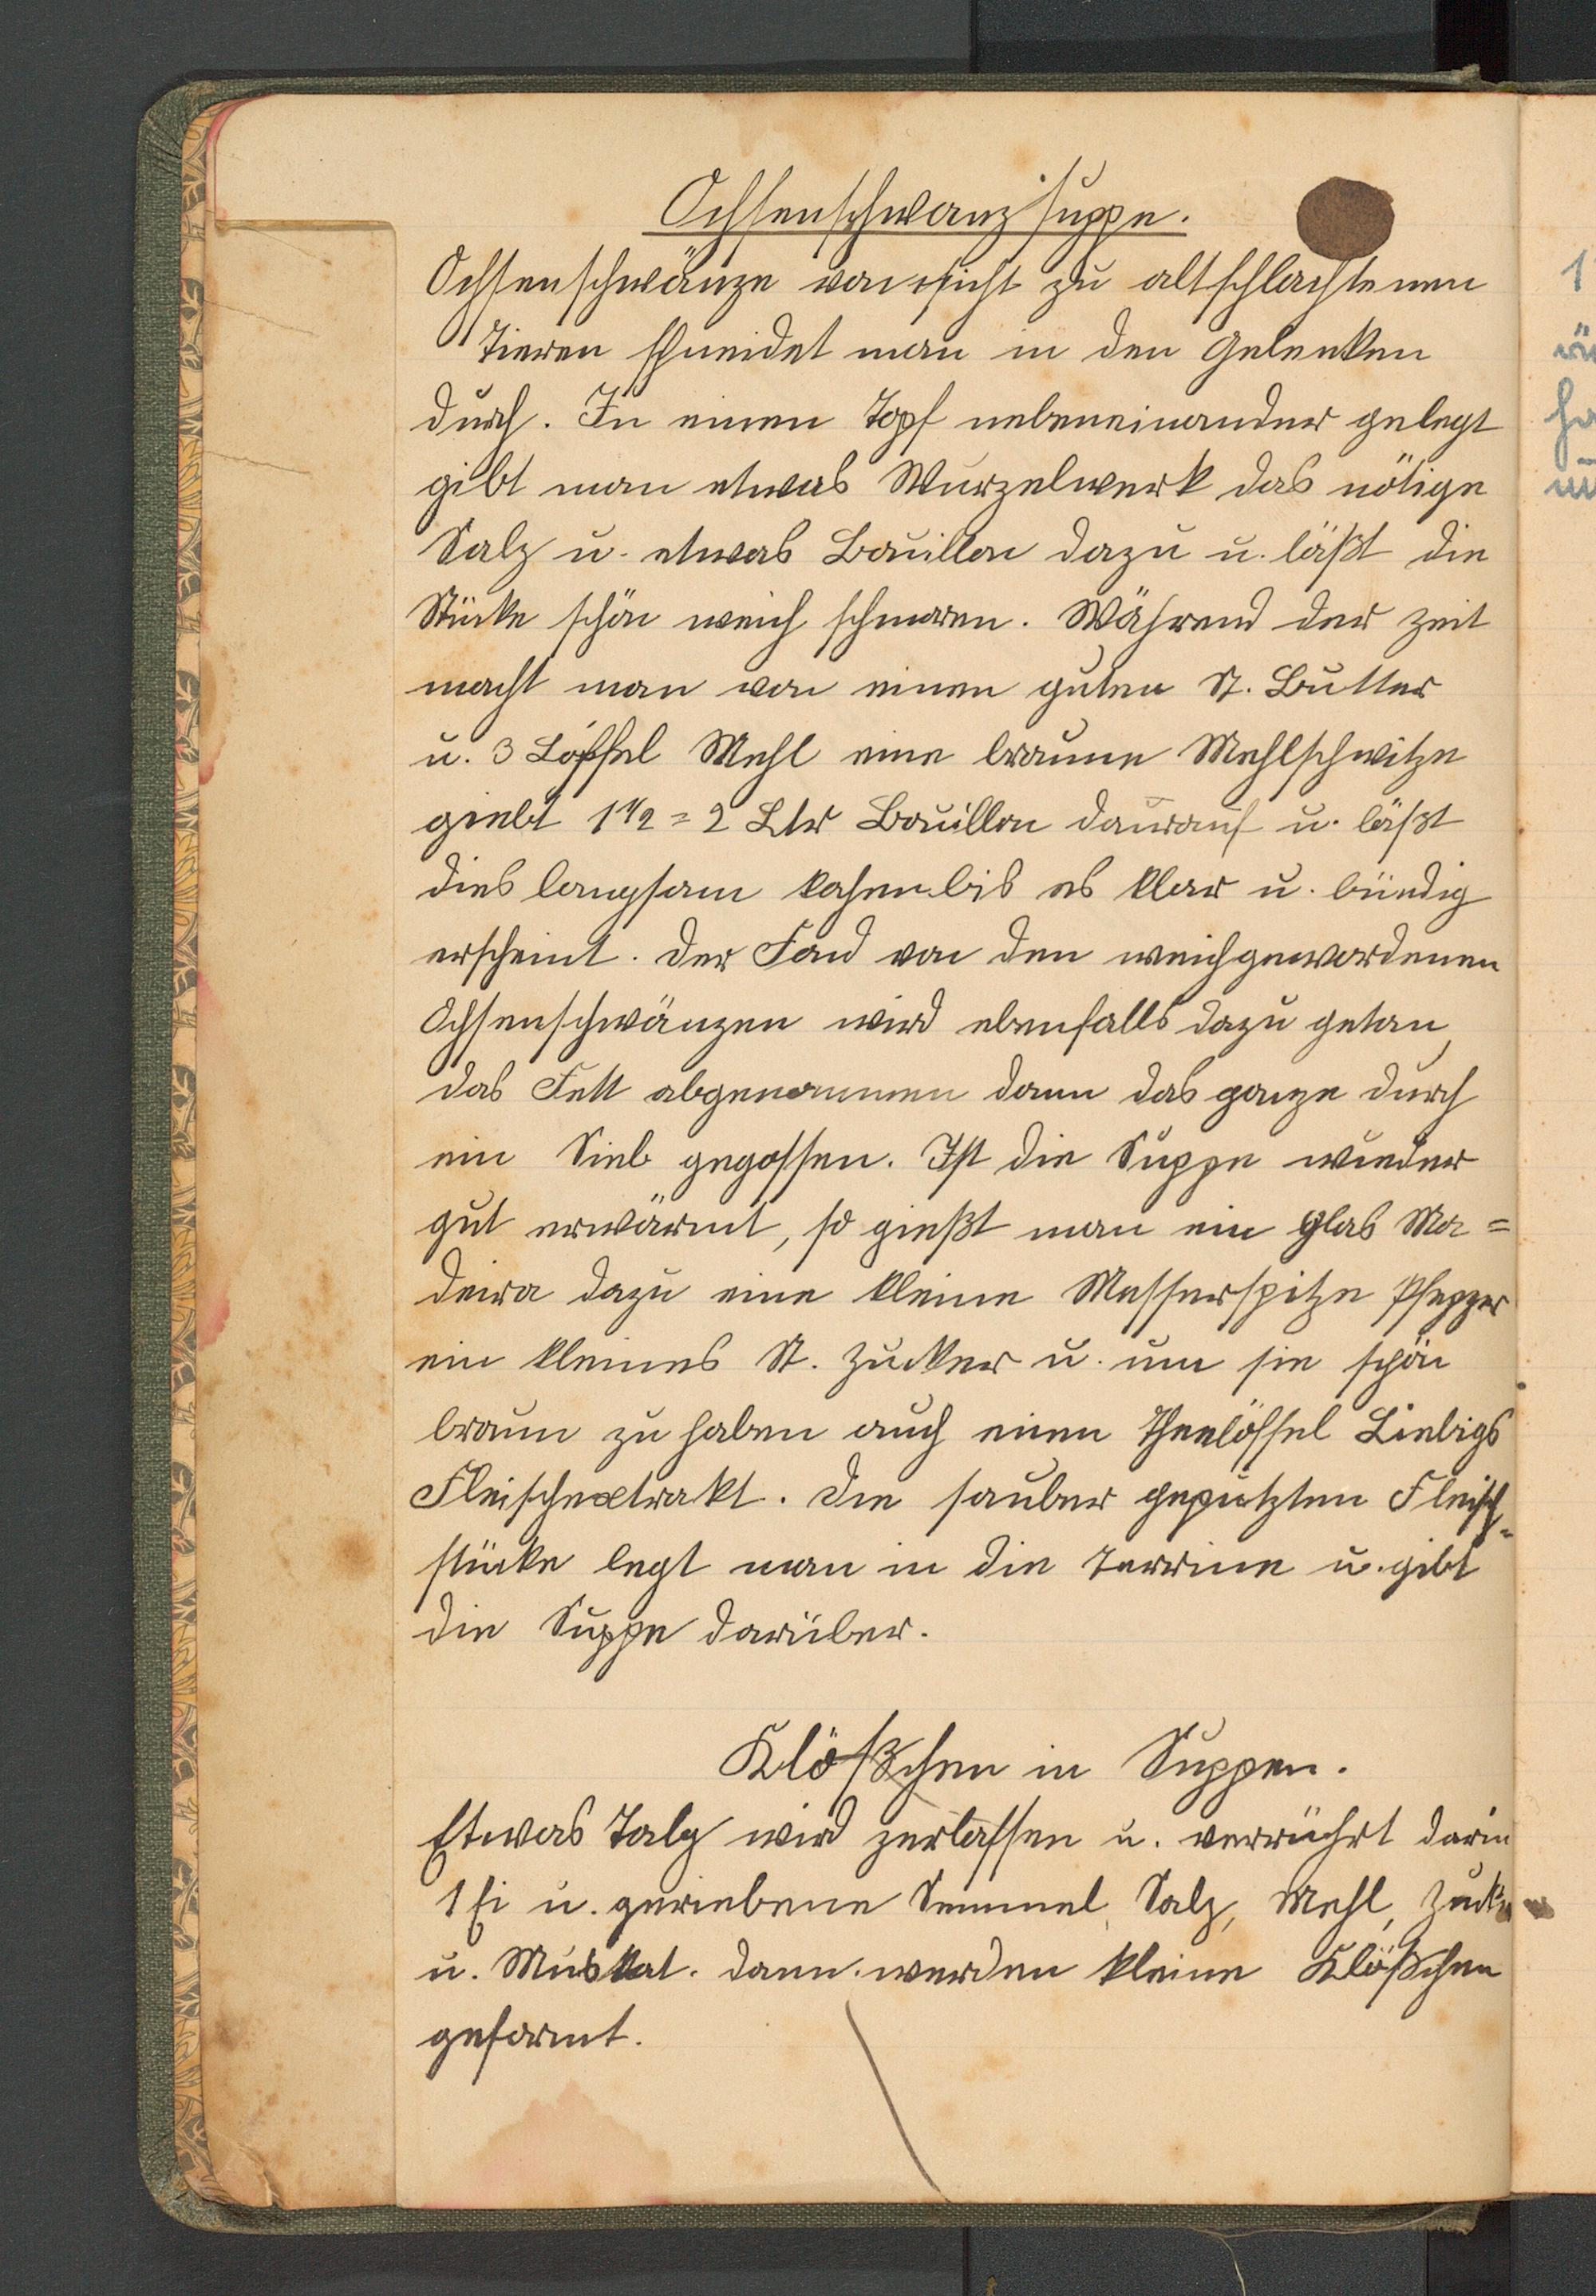 Ochsenschwanzsuppe.
Ochsenschwänze von nicht zu altschlachtenen
Tieren schneidet man in den Gelenken
durch. In einen Topf nebeneinander gelegt
gibt man etwas Wurzelwerk das nötige
Salz u. etwas Bouillon dazu u. läßt die
Stücke schön weich schmoren. Während der Zeit
macht man von einen guten St. Butter
u. 3 Löffel Mehl eine braune Mehlschwitze
giebt 1 1/2 = 2 Ltr Bouillon daurauf u. läßt
dies langsam kochen bis es klar u. bündig
erscheint. Der Fond von den weichgewordenen
Ochsenschwänzen wird ebenfalls dazu getan,
das Fett abgenommen dann das ganze durch
ein Sieb gegossen. Ist die Suppe wieder
gut erwärmt, so gießt man ein Glas Ma=
deira dazu eine kleine Messerspitze Pfeffer
ein kleines St. Zucker u. um sie schön
braun zu haben auch einen Theelöffel Liebigs
Fleischextrakt. Die sauber geputzten Fleisch=
stücke legt man in die Terrine u. gibt
die Suppe darüber.
Klößchen in Suppen.
Etwas Talg wird zerlassen u. verrührt darin
1 Ei u. geriebene Semmel, Salz, Mehl, Zucker
u. Muskat. dann werden kleine Klößchen
geformt.